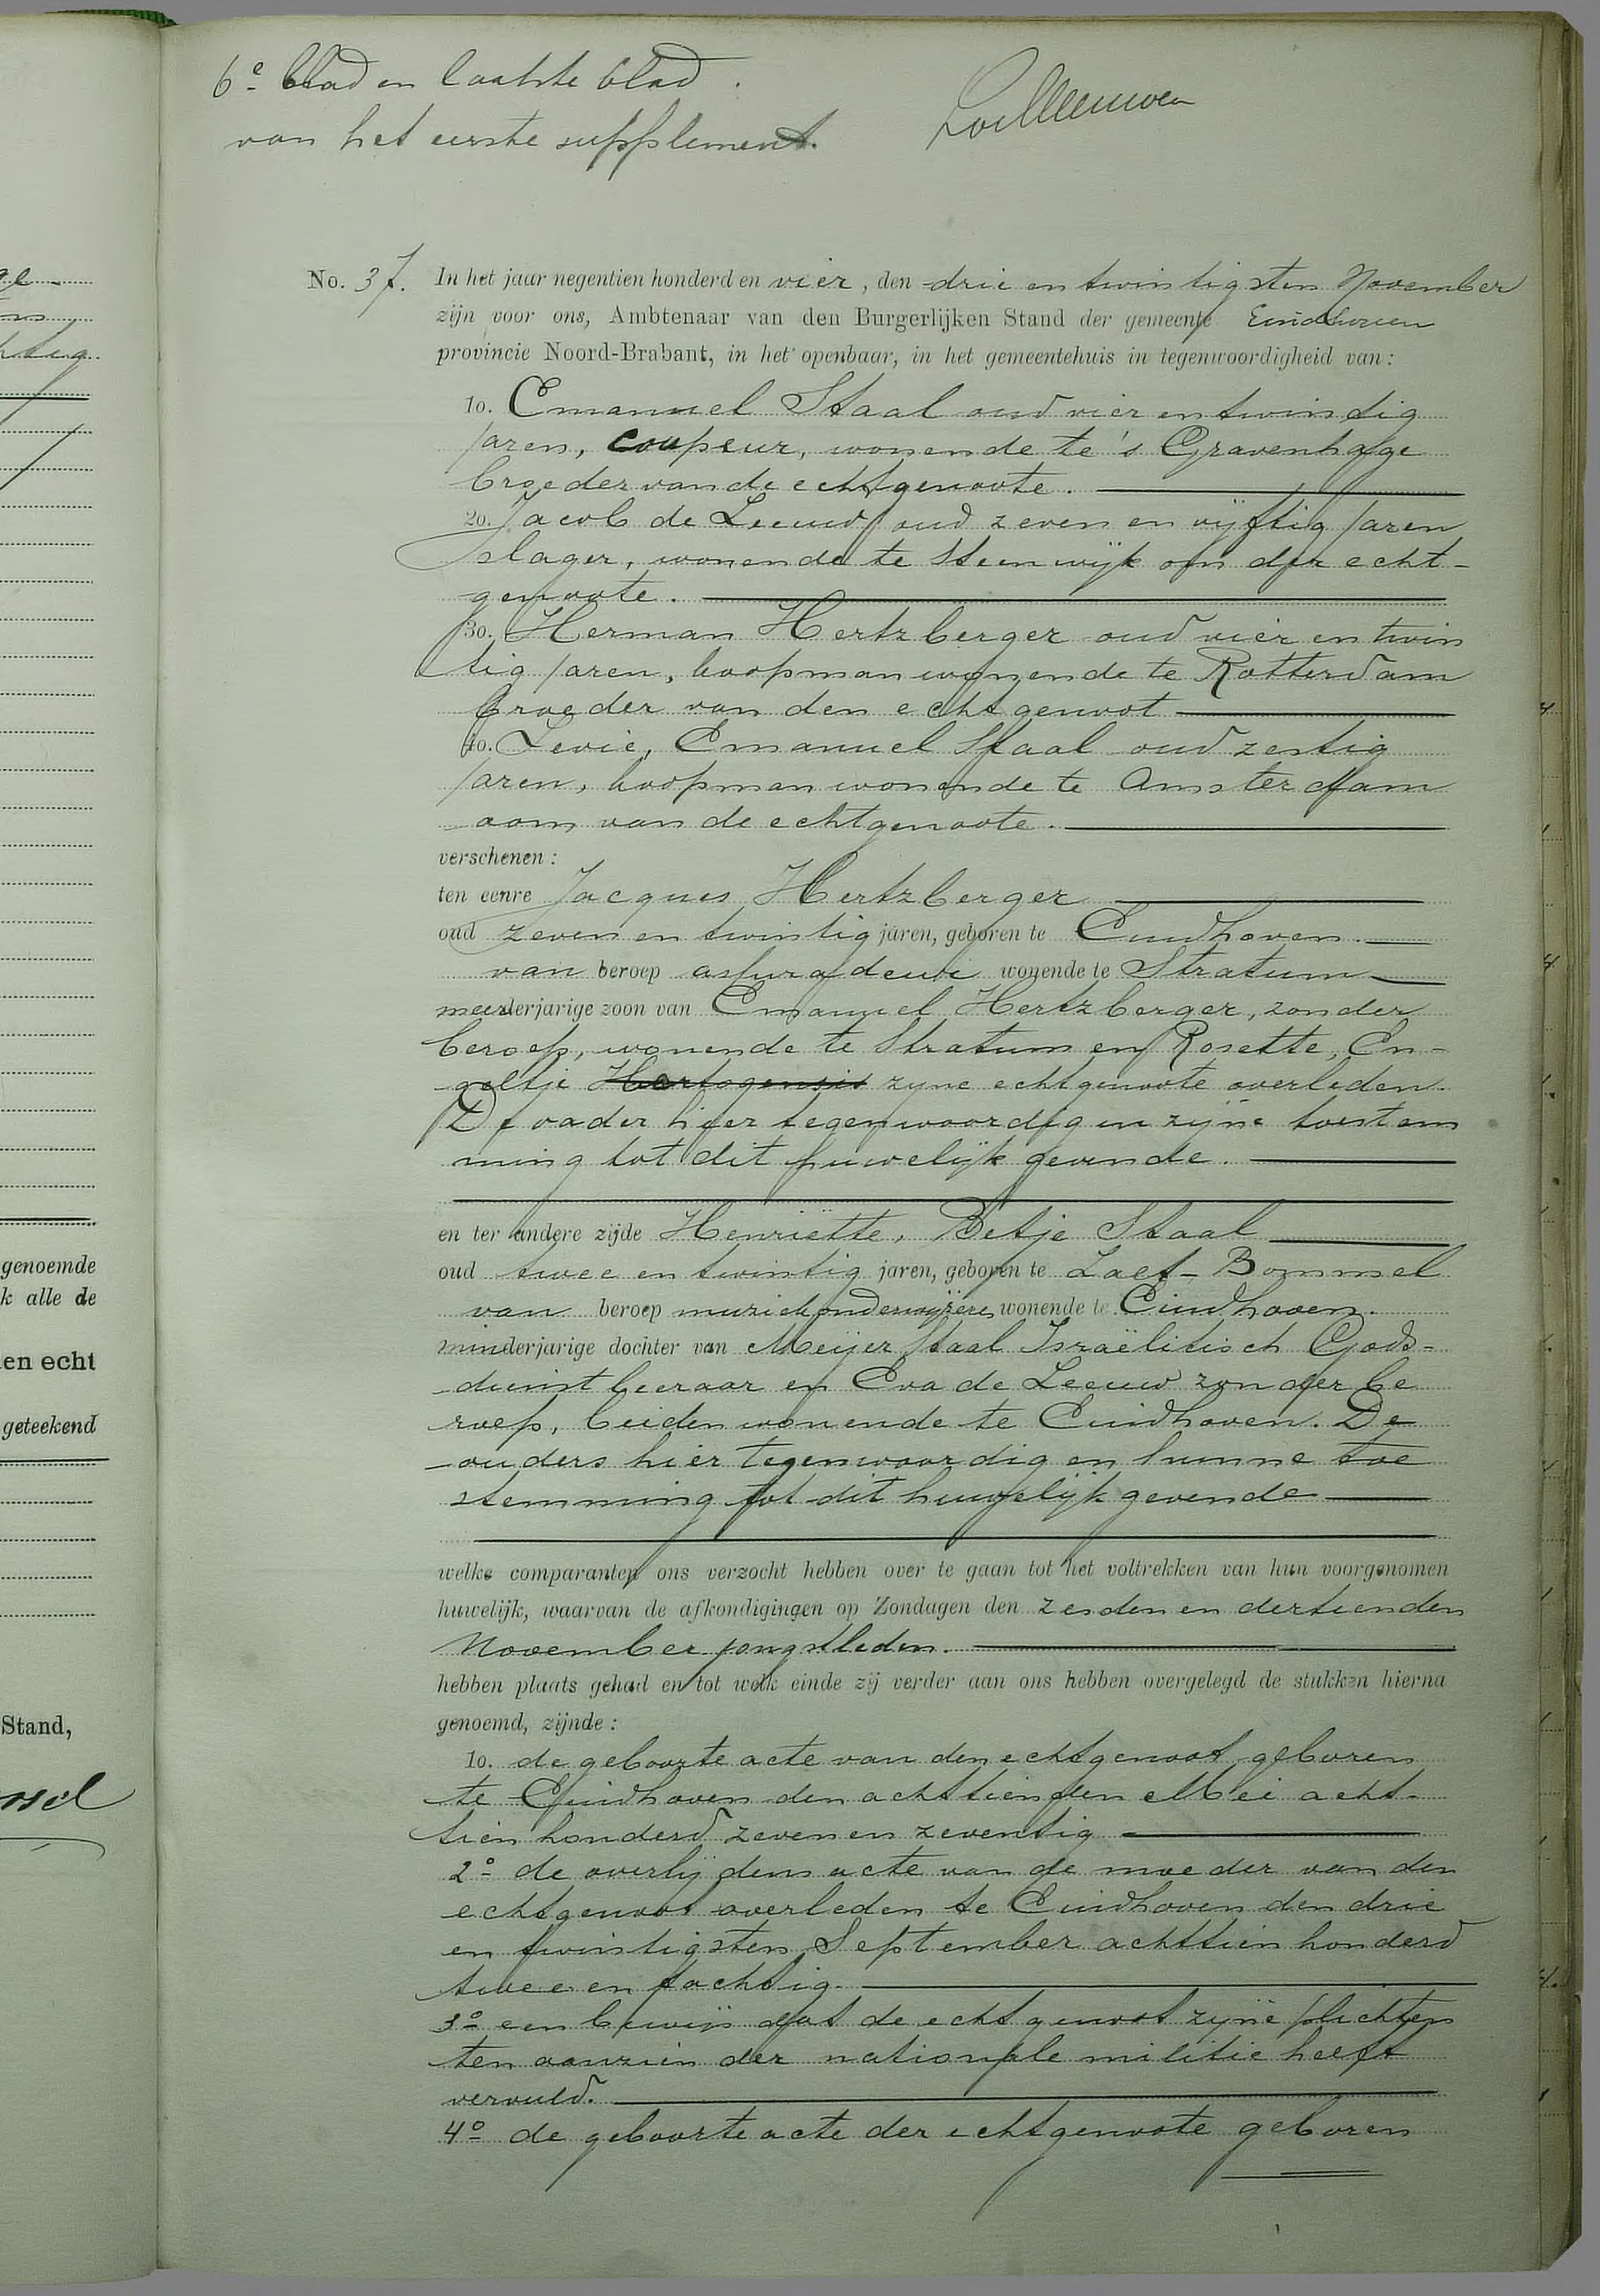 6e blad en laatste blad
van het eerste supplement.
No. 37. In het jaar negentien honderd en vier, den drie en twintigsten November
zijn voor ons, Ambtenaar van den Burgerlijken Stand der gemeente Eindhoven
provincie Noord-Brabant, in het openbaar, in het gemeentehuis in tegenwoordigheid van:
1o. Emanuel Staal oud vier en twintig
jaren, coupeur, wonende te 's Gravenhage
broeder van de echtgenoote.
2o. Jacob de Leeuw oud zeven en vijftig jaren
slager, wonende te Steenwijk oom der echt-
genoote.
3o. Herman Hertzberger oud vier en twin
tig jaren, koopman wonende te Rotterdam
broeder van den echtgenoot
4o. Levie, Emanuel Staal oud zestig
jaren, koopman wonende te Amsterdam
oom van de echtgenoote.
verschenen:
ten eenre Jacques Hertzberger
oud zeven en twintig jaren, geboren te Eindhoven.
van beroep wonende te Stratum
meerderjarige zoon van Emanuel Hertzberger, zonder
beroep, wonende te Stratum en Rosette, En-
geltje zyne echtgenoote overleden.
De vader hier tegenwoordig en zijne toestem
ming tot dit huwelijk gevende.
en ter andere zijde Henriëtte, Betje Staal
oud twee en twintig jaren, geboren te Zalt-Bommel
van beroep muziekonderwijzeres wonende te Eindhoven.
minderjarige dochter van Meijer Staal Israëlitisch Gods-
dienstleeraar en Eva de Leeuw zonder be
roep, beiden wonende te Eindhoven. De
ouders hier tegenwoordig en hunne toe
stemming tot dit huwelijk gevende
welke comparanten ons verzocht hebben over te gaan tot het voltrekken van hun voorgenomen
huwelijk, waarvan de afkondigingen op Zondagen den zesden en dertienden
November jongstleden.
hebben plaats gehad en tot welk einde zij verder aan ons hebben overgelegd de stukken hierna
genoemd, zijnde:
1o. de geboorteacte van den echtgenoot geboren
te Eindhoven den achttienden Mei acht-
tien honderd zeven en zeventig
2o de overlijdensacte van de moeder van den
echtgenoot overleden te Eindhoven den drie
en twintigsten September achttien honderd
twee en tachtig.
3o een bewijs dat de echtgenoot zijne plichten
ten aanzien der nationale militie heeft
vervuld.
4o de geboorteacte der echtgenoote geboren
genoemde
k alle de
en echt
geteekend
Stand,